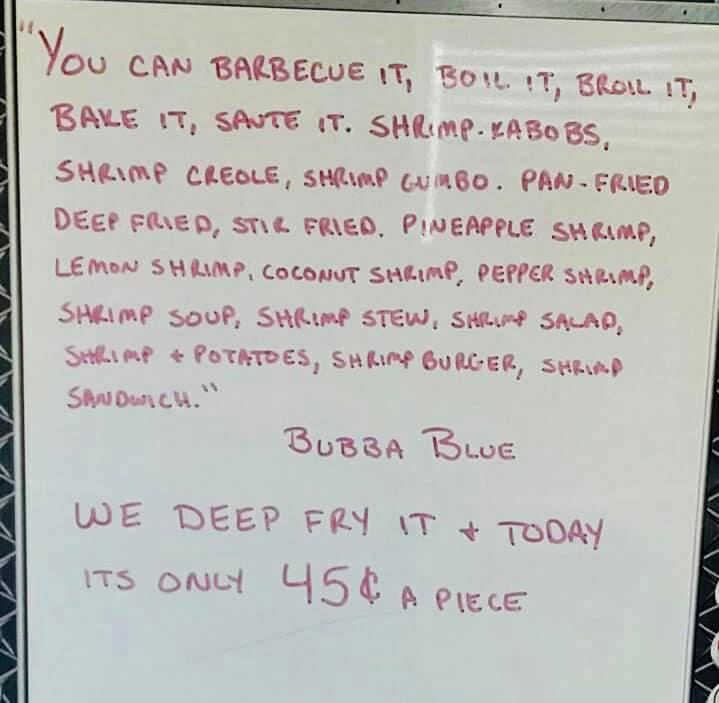 "YOU CAN BARBECUE IT, BOIL IT, BROIL IT,
BAKE IT, SAUTE IT. SHRIMP-KABOBS,
SHRIMP CREOLE, SHRIMP GUMBO. PAN-FRIED
DEEP FRIED, STIR FRIED. PINEAPPLE SHRIMP,
LEMON SHRIMP, COCONUT SHRIMP, PEPPER SHRIMP,
SHRIMP SOUP, SHRIMP STEW, SHRIMP SALAD,
SHRIMP + POTATOES, SHRIMP BURGER, SHRIMP
SANDWICH."
BUBBA BLUE
WE DEEP FRY IT + TODAY
ITS ONLY 45¢ A PIECE